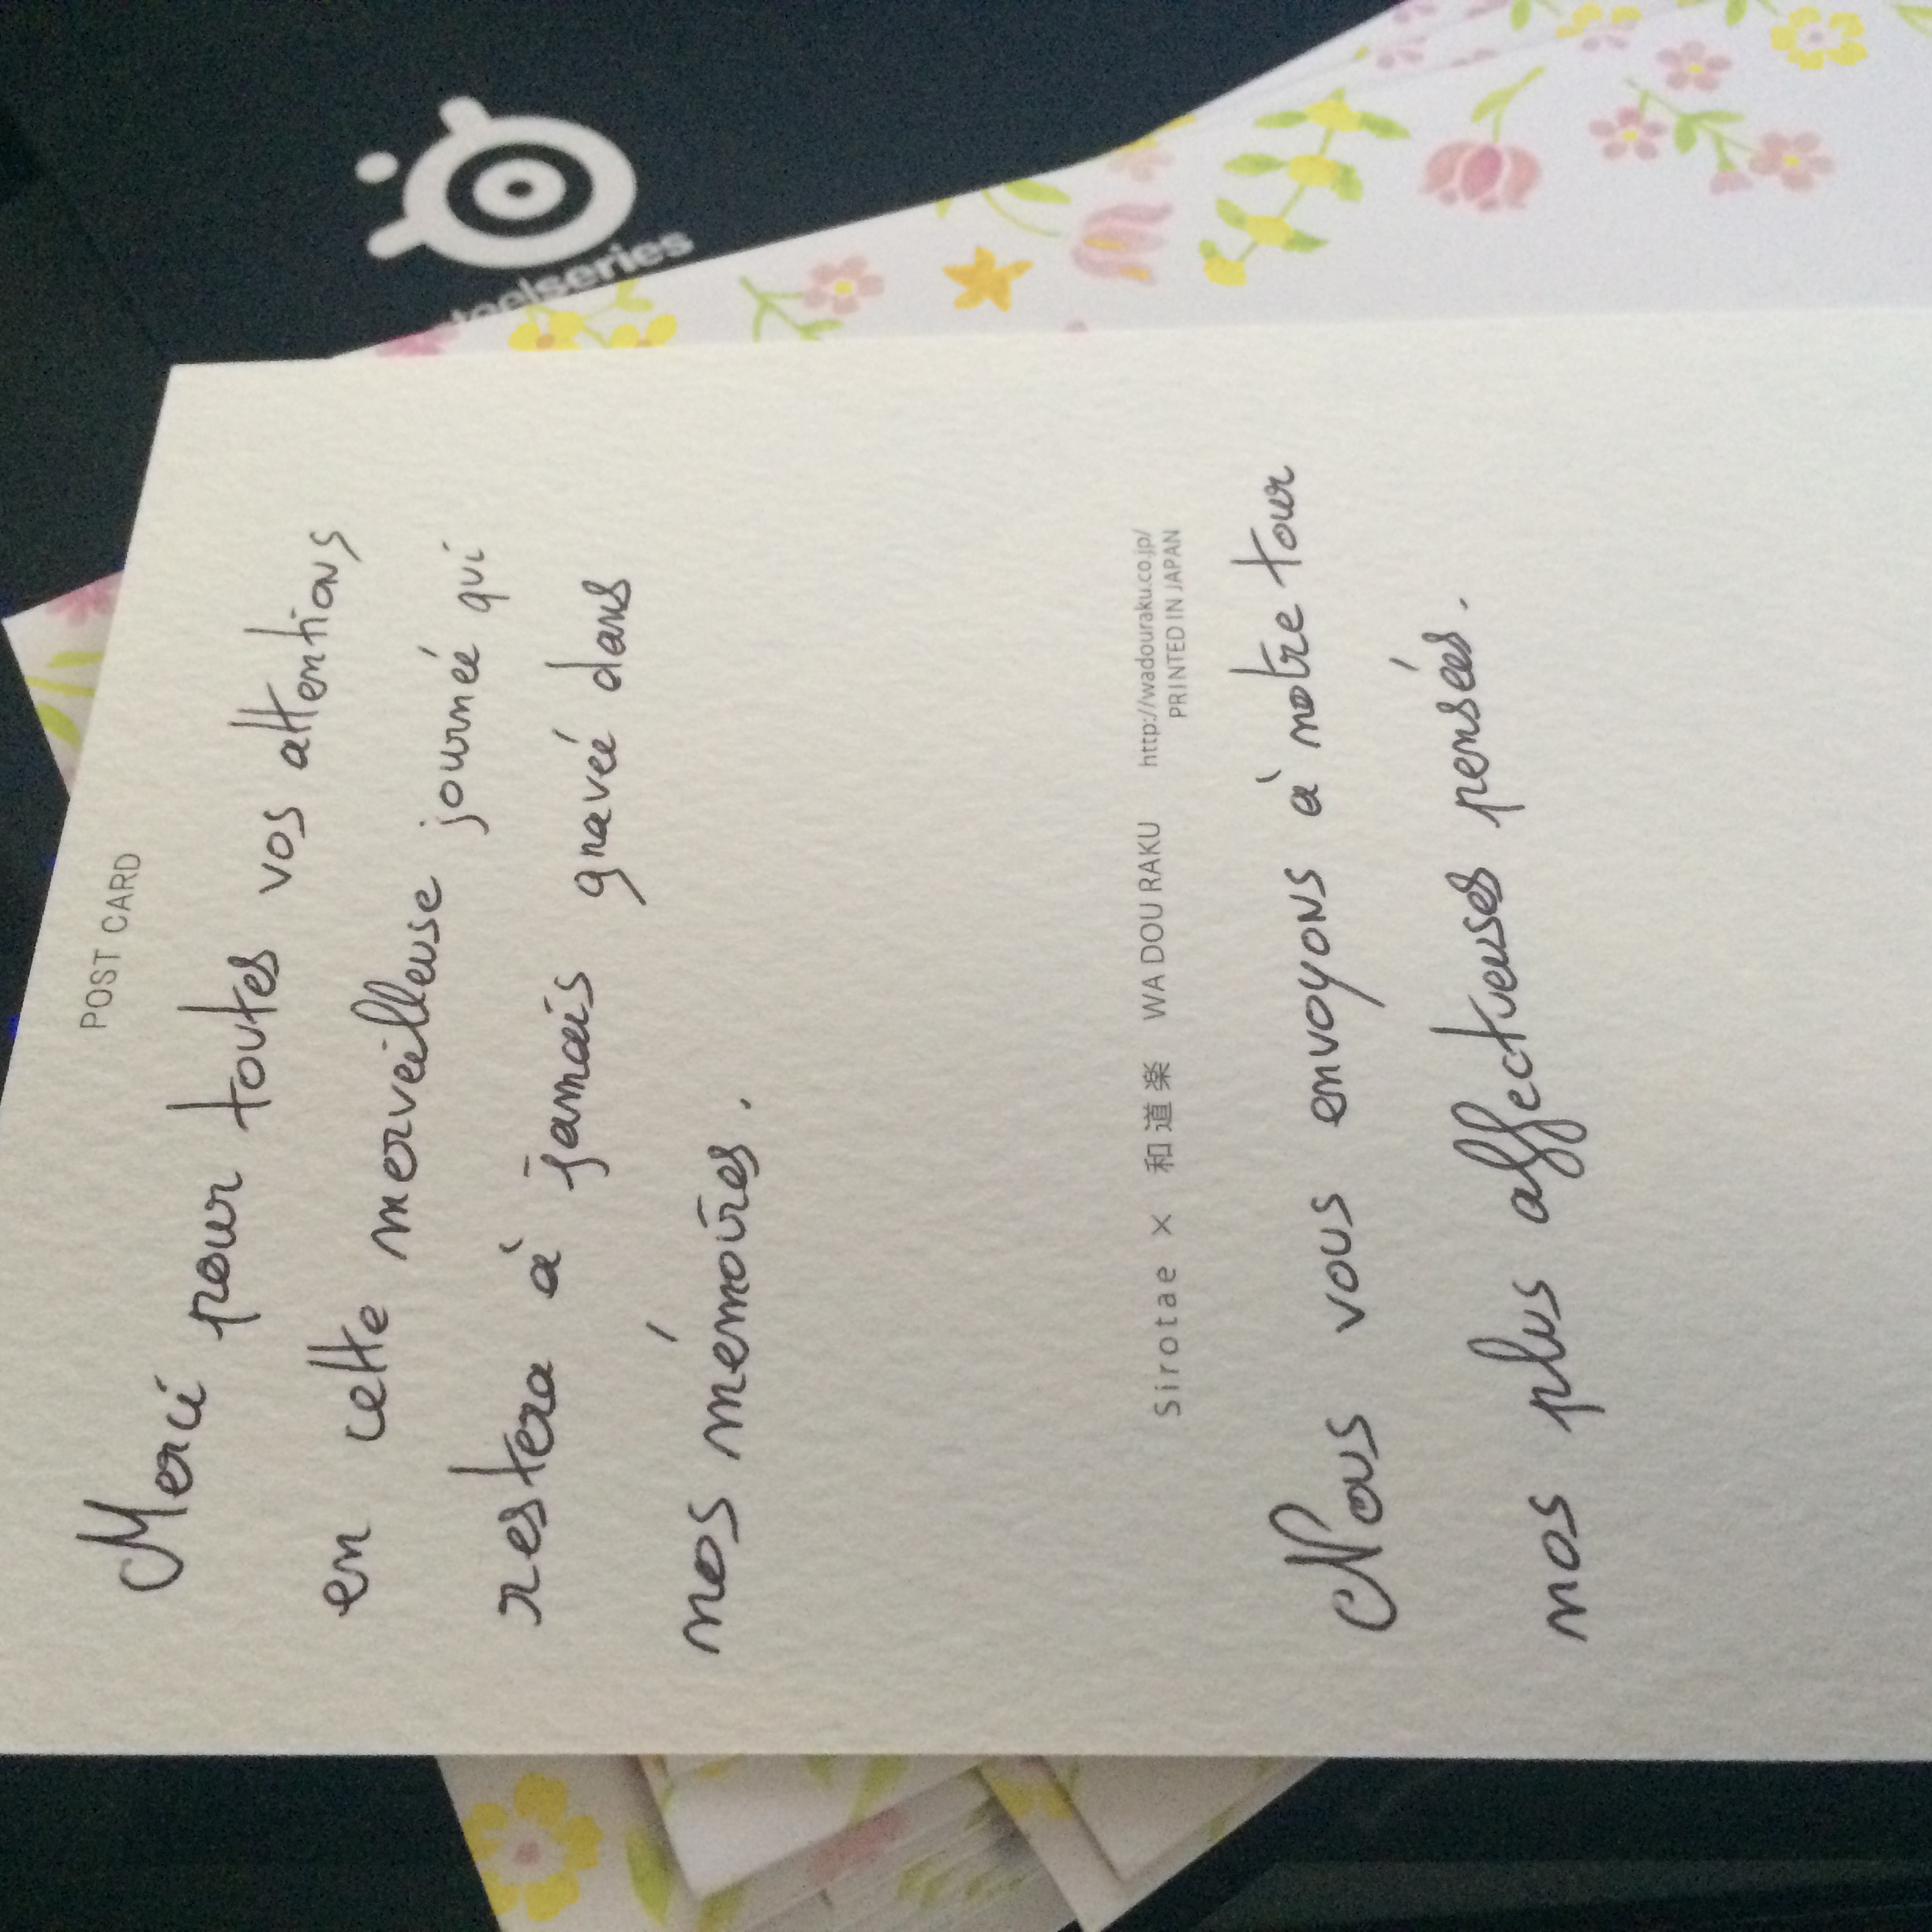 steelseries
POST CARD
Merci pour toutes vos attentions
en cette merveilleuse journée qui
restera à jamais gravée dans
nos mémoires.
Sirotae × 和道楽 WA DOU RAKU http://wadouraku.co.jp/
PRINTED IN JAPAN
Nous vous envoyons à notre tour
nos plus affectueuses pensées.